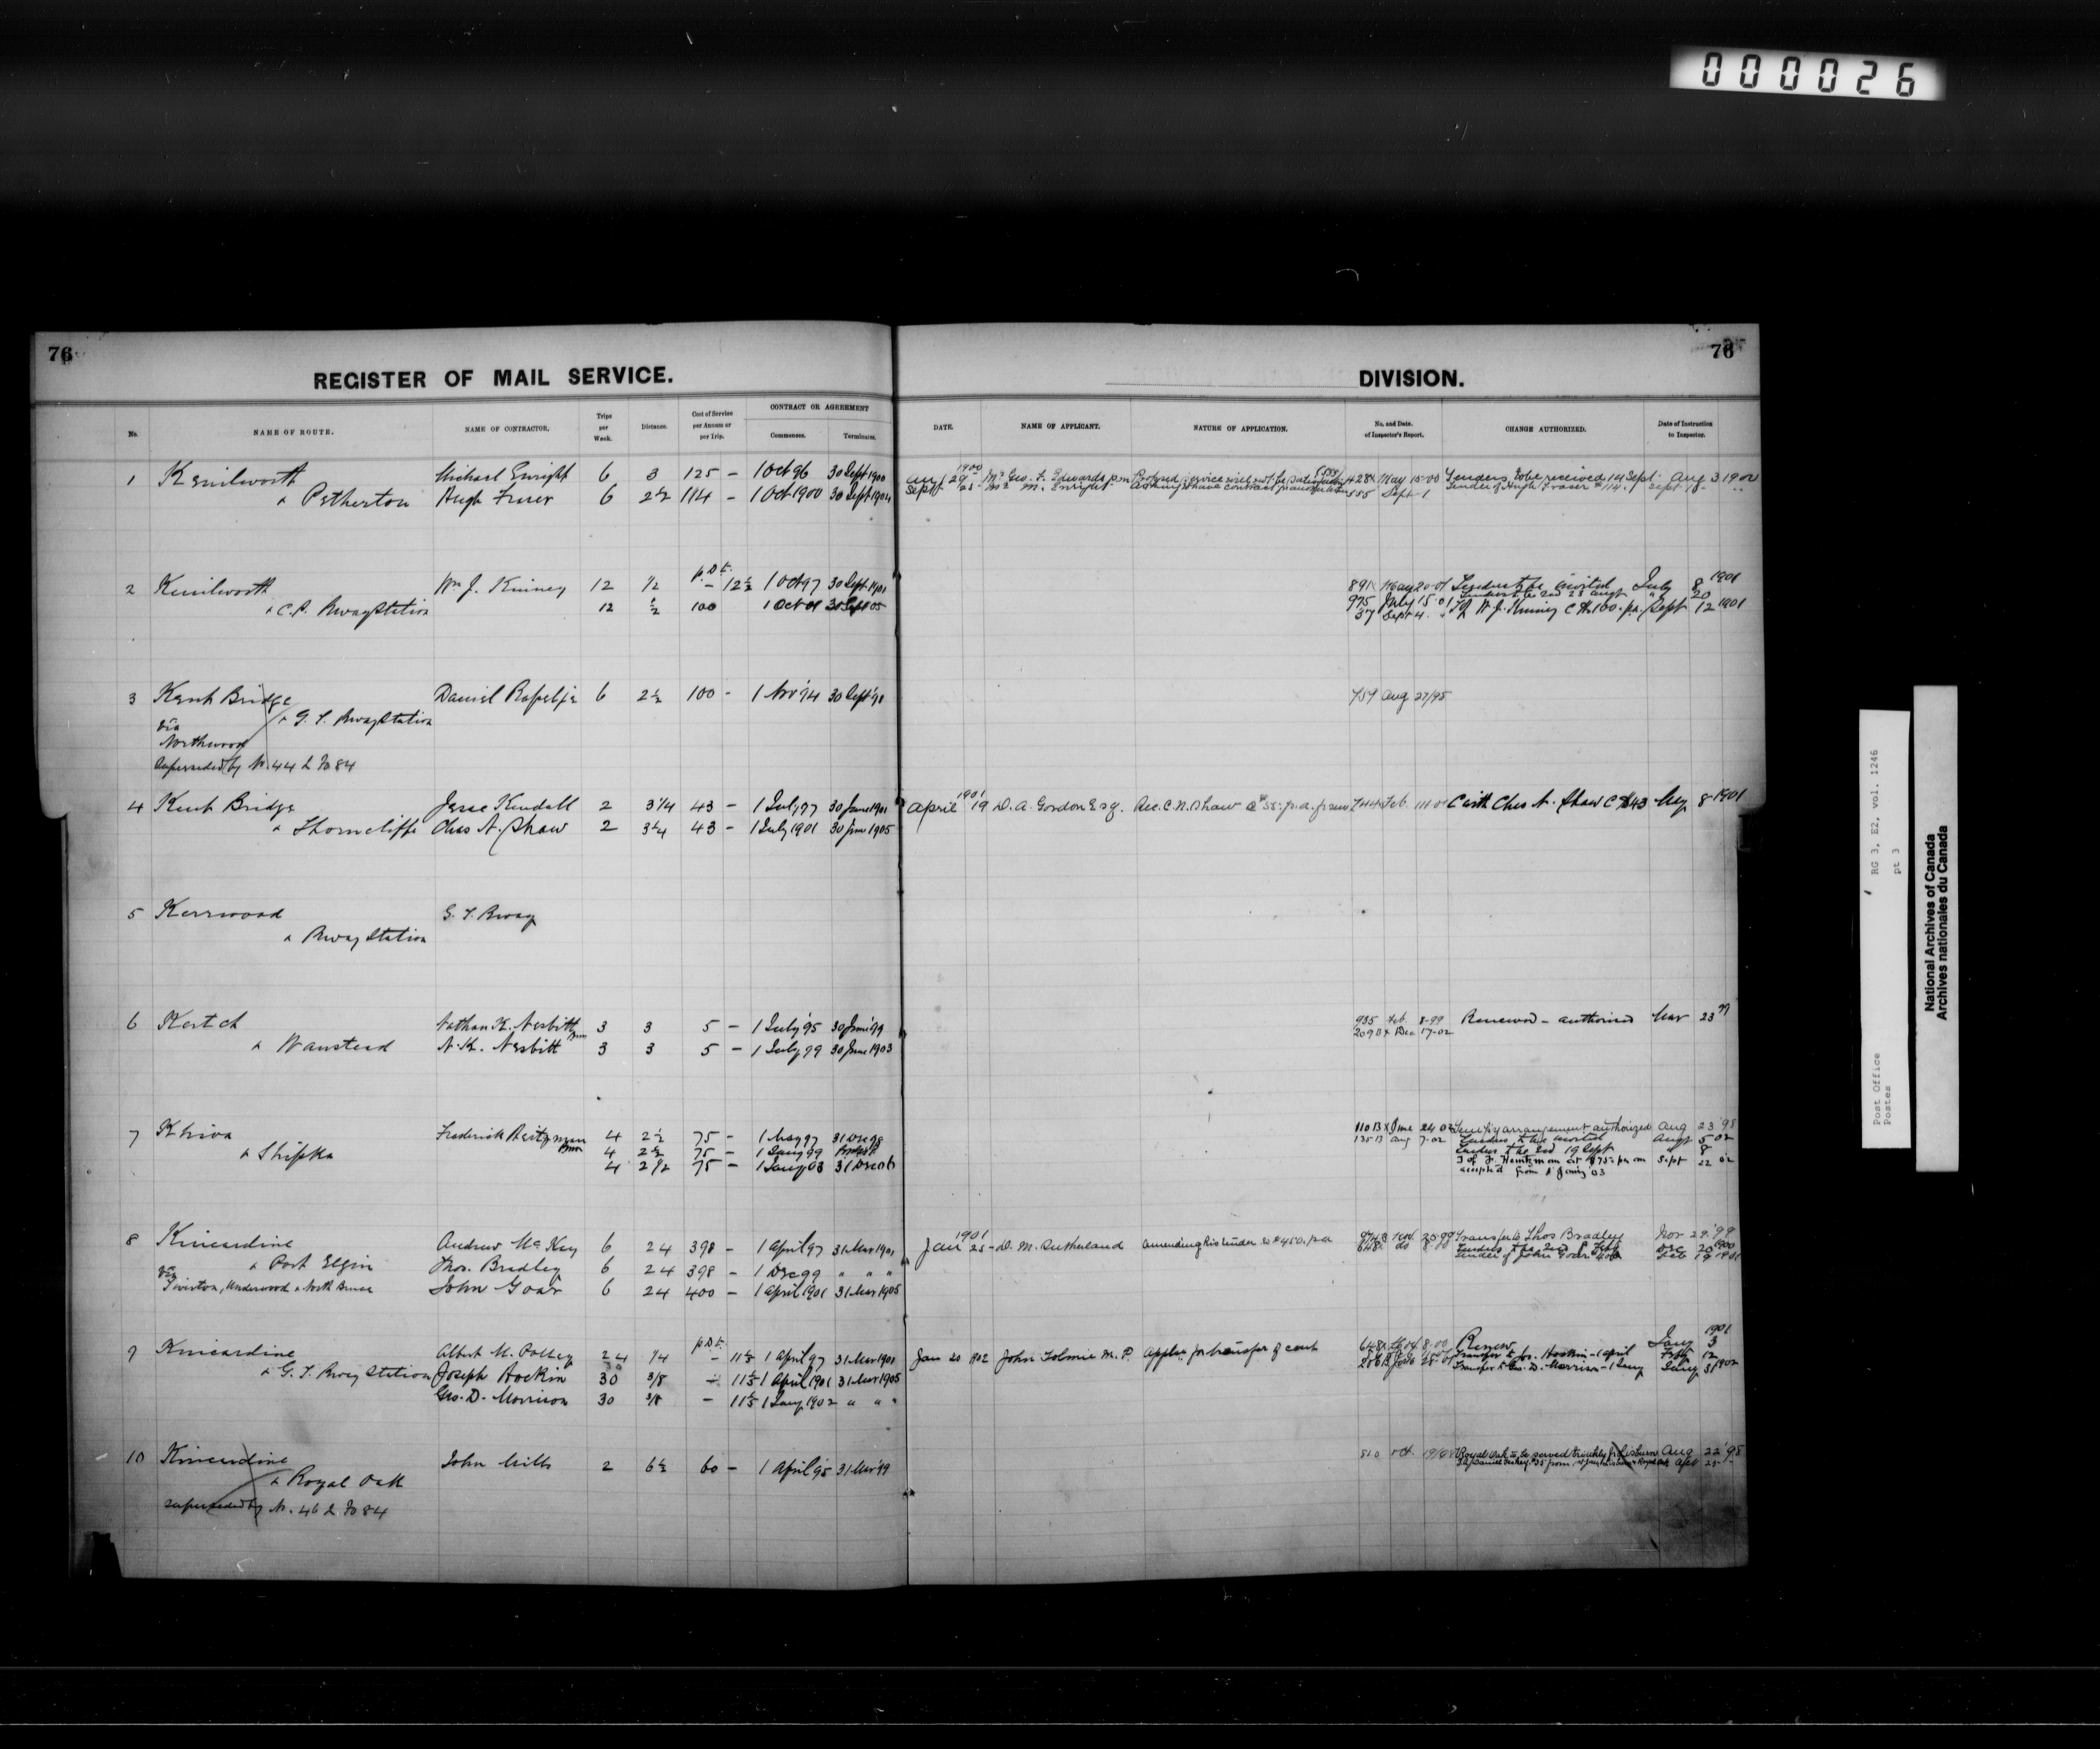 000026
76
REGISTER OF MAIL SERVICE.
No. NAME OF ROUTE. NAME OF CONTRACTOR. Trips per Week. Distance. Cost of Service per Annum or per Trip. CONTRACT OR AGREEMENT Commences. Terminates.
1 Kenilworth Michael Enright 6 3 125 - 1 Oct 96 30 Sept 1900
& Petherton Hugh Fraser 6 2½ 114 - 1 Oct 1900 30 Sept 1904
2 Kenilworth Wm J. Kinney 12 1/2 p.D.t. - 12½ 1 Oct 97 30 Sept 1901
& C.P. Rway Station 12 ½ 100 1 Oct 01 30 Sept 05
3 Kent Bridge Daniel Rapelje 6 2½ 100 - 1 Nov '94 30 Sept '98
& G. T. Rway Station
via
Northwood
Superseded by No. 44 L Fo 84
4 Kent Bridge Jesse Kendall 2 3 1/4 43 - 1 July 97 30 June 1901
& Thorncliffe Chas A. Shaw 2 3¼ 43 - 1 July 1901 30 June 1905
5 Kerrwood G. T. Rway
& Rway Station
6 Kertch Nathan K. Nesbitt 3 3 5 - 1 July '95 30 June '99
& Wanstead N. K. Nesbitt 3 3 5 - 1 July 99 30 June 1903
7 Khiva Frederick 4 2½ 75 - 1 Jany 97 31 Dec 98
& Shipka 4 2½ 75 - 1 Jany 99
4 2 1/2 75 - 1 Jany 03 31 Dec 06
8 Kincardine Andrew McKay 6 24 398 - 1 April 97 31 Mar 1901
& Port Elgin Thos. Bradley 6 24 398 - 1 Dec 99 " " "
via
Tiverton, Underwood & North Bruce John Goar 6 24 400 - 1 April 1901 31 Mar 1905
9 Kincardine Albert M. 24 1/4 p.D.t. - 11½ 1 April 97 31 Mar 1901
& G. T. Rway Station Joseph Hockin 30 3/8 - 1 April 1901 31 Mar 1905
Geo. D. Morrison 30 3/8 - 1 Jany 1902 " " "
10 Kincardine John Mills 2 6½ 60 - 1 April '95 31 Mar '99
& Royal Oak
superseded by No. 46 L Fo 84
76
DIVISION.
DATE. NAME OF APPLICANT. NATURE OF APPLICATION. No. and Date of Inspector's Report. CHANGE AUTHORIZED. Date of Instruction to Inspector.
1900
Aug 29 Geo. F. Edwards p.m. Proposed service will not be satisfactory 428 May 15-00 Tenders to be received 14 Sept Aug 3 1900
Sept M. Enright 555 Sept 1 Tender of Hugh Fraser $114. Sept 18
891 May 20-01 Tenders to be invited July 8 1901
975 July 15 01 20
37 Sept 4 T of W. J. Kinney C $100. p.a. Sept 12 1901
759 Aug 27/95
1901
April 19 D. A. Gordon Esq. Rec. C. N. Shaw p.a. from 744 Feb. C with Chas A. Shaw C $43 May 8 1901
935 Feb. 8-99 Renewal - authorised Mar 23 99
209 B Dec 17-02
110 B June 24 02 Temp'y arrangement authorized Aug 23 '98
135 B Aug 7-02 Tenders to be invited Augt 5 02
Tenders to be recd 19 Sept 8
T of F. at $75 - per an Sept 22 02
accepted from 1 Jany 03
1901
Jan 25 - D. M. Sutherland amending his tender to $450. p.a. Transfer to Thos Bradley Nov 29. '99
Tender of John Goar $400 Feb 19 1901
1901
Jan 20 1902 John Tolmie M. P. Applin for transfer of cont 648 8-00 Renew Jany 3
Transfer to Jos. Hockin - 1 April Feby 12
Transfer to Geo. D. Morrison - 1 Jany Jany 31 1902
510 Oct. Royal Oak to be served Aug 22 '98
RG 3, E2, vol. 1246
pt 3
Post Office
Postes
National Archives of Canada
Archives nationales du Canada